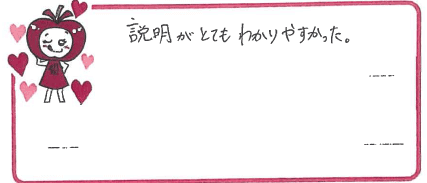 説明がとてもわかりやすかった。